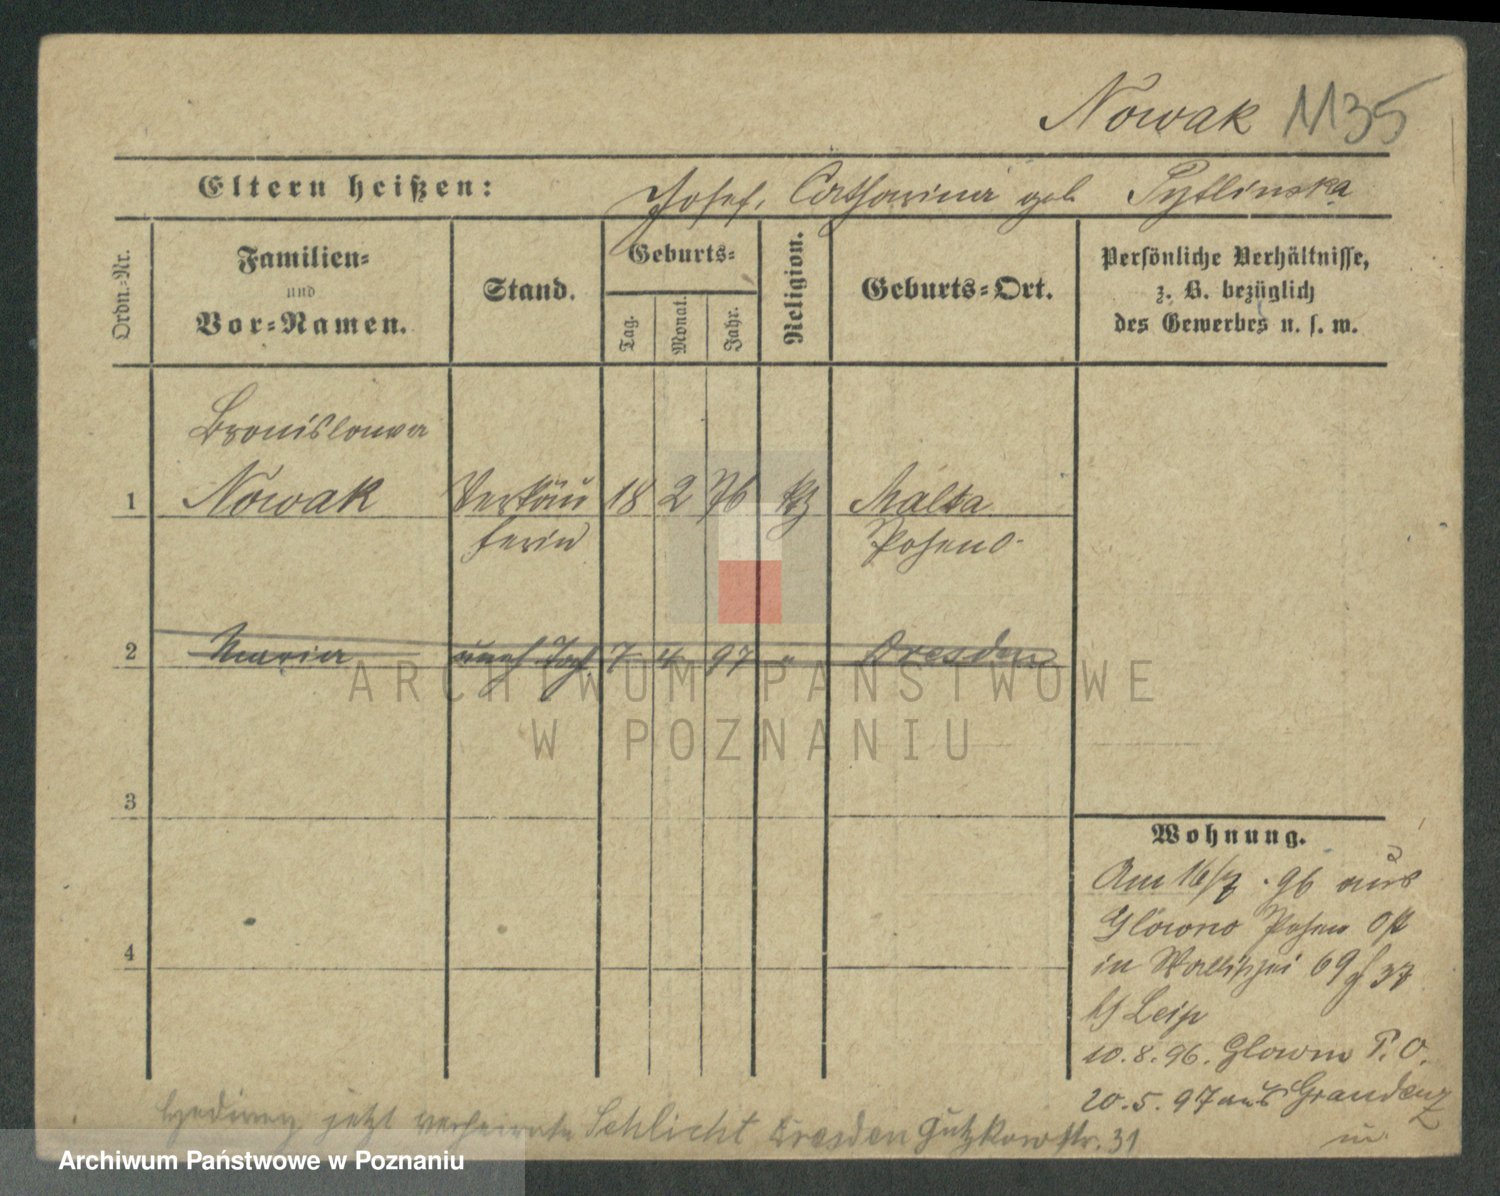 Nowak 1135
Eltern heißen: Josef, Catharina geb Pytlinska
Ordn.-Nr.
Familien-
und
Vor-Namen.
Stand.
Geburts-
Tag.
Monat.
Jahr.
Religion.
Geburts-Ort.
Persönliche Verhältnisse,
z. B. bezüglich
des Gewerbes u. s. w.
Bronislawa
1 Nowak Verkäu 18 2 76 kth Malta
ferin Posen O.
2 Maria uneh Tch. 7 4 97 " Dresden
3
4
Wohnung.
Am 16/7 . 96 aus
Glowno Posen Ost
in Wallischei 69
b/ Leip
10. 8. 96. Glowno P. O.
20. 5. 97 aus Graudenz
in
jetzt verheirate Schlicht Dresden Gutzkowstr. 31
ARCHIWUM PAŃSTWOWE
W POZNANIU
Archiwum Państwowe w Poznaniu